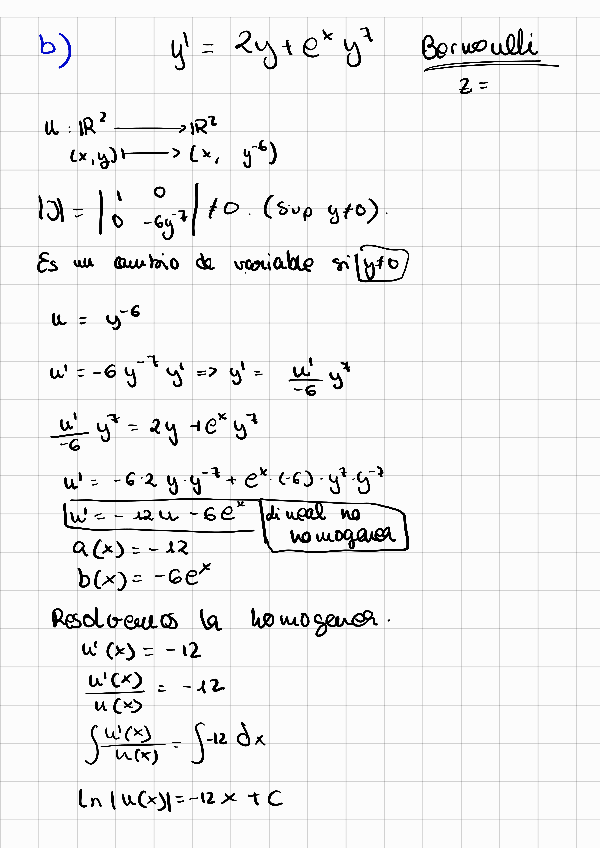 b) y' = 2y + eˣ y⁷ Bernoulli
z =
u : ℝ² ⟶ ℝ²
(x,y) ⟼ (x, y⁻⁶)
|J| = | 1 0 ; 0 -6y⁻⁷ | ≠ 0. (Sup y≠0).
Es un cambio de variable si y≠0
u = y⁻⁶
u' = -6 y⁻⁷ y' => y' = u'/-6 y⁷
u'/-6 y⁷ = 2y + eˣ y⁷
u' = -6·2 y·y⁻⁷ + eˣ·(-6)·y⁷·y⁻⁷
u' = -12u - 6eˣ lineal no
homogenea
a(x) = -12
b(x) = -6eˣ
Resolvemos la homogenea.
u'(x) = -12
u'(x)/u(x) = -12
∫ u'(x)/u(x) = ∫ -12 dx
ln |u(x)| = -12x + C